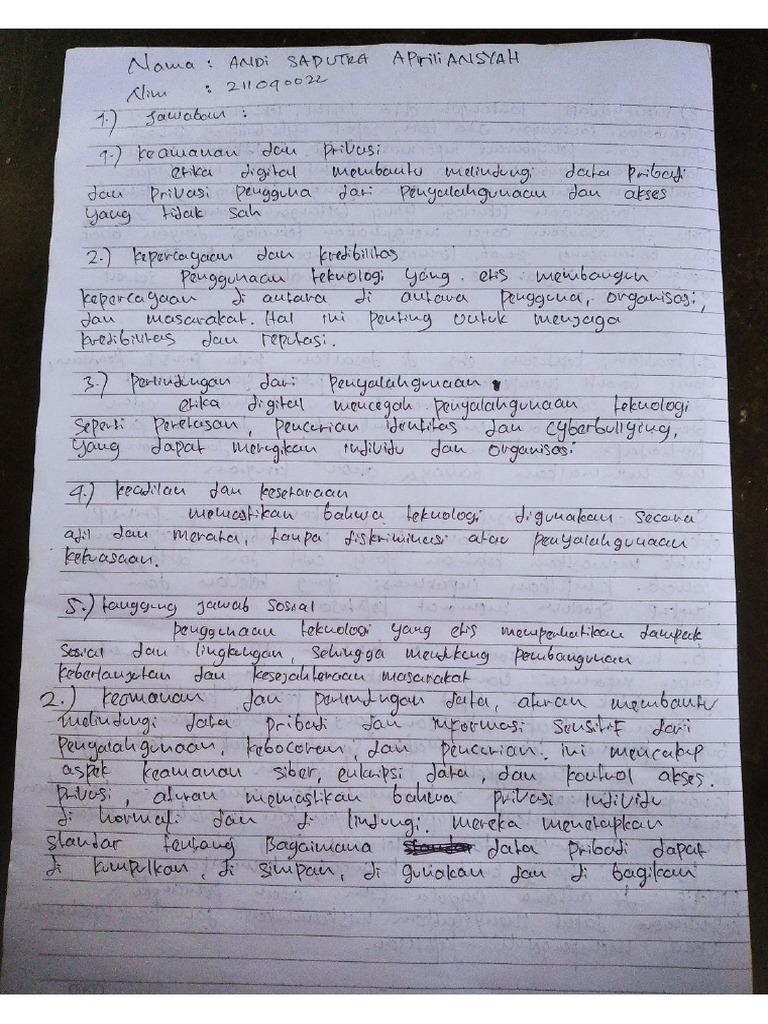 Nama : ANDI SAPUTRA APriliANSYAH
Nim : 211090022
1.) Jawaban :
1.) keamanan dan privasi
etika digital membantu melindungi data pribadi
dan privasi pengguna dari penyalahgunaan dan akses
yang tidak sah
2.) kepercayaan dan kredibilitas
Penggunaan teknologi yang etis membangun
kepercayaan di antara di antara pengguna, organisasi,
dan masarakat. Hal ini penting untuk menjaga
kredibilitas dan reputasi.
3.) perlindungan dari penyalahgunaan.
etika digital mencegah penyalahgunaan teknologi
seperti peretasan, pencurian identitas dan cyberbullying,
yang dapat merugikan individu dan organisasi
4.) keadilan dan kesetaraan
memastikan bahwa teknologi digunakan secara
adil dan merata, tanpa diskriminasi atau penyalahgunaan
kekuasaan.
5.) tanggung jawab sosial
penggunaan teknologi yang etis memperhatikan dampak
sosial dan lingkungan, sehingga mendukung pembangunan
keberlanjutan dan kesejahteraan masarakat
2.) keamanan dan perlindungan data, aturan membantu
melindungi data pribadi dan informasi sensitif dari
penyalahgunaan, kebocoran, dan pencurian. ini mencakup
aspek keamanan siber, enkripsi data, dan kontrol akses.
privasi, aturan memastikan bahwa privasi individu
di hormati dan di lindungi. mereka menetapkan
standar tentang Bagaimana data pribadi dapat
di kumpulkan, di simpan, di gunakan dan di bagikan